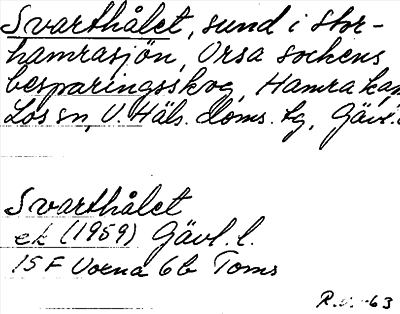 Svarthålet, sund i Stor-
hamrasjön, Orsa sockens
besparingsskog, Hamra kap
Los sn, V. Häls. doms. tg, Gävl.
Svarthålet
ek (1959) Gävl. l.
15 F Voxna 6b Toms
-63